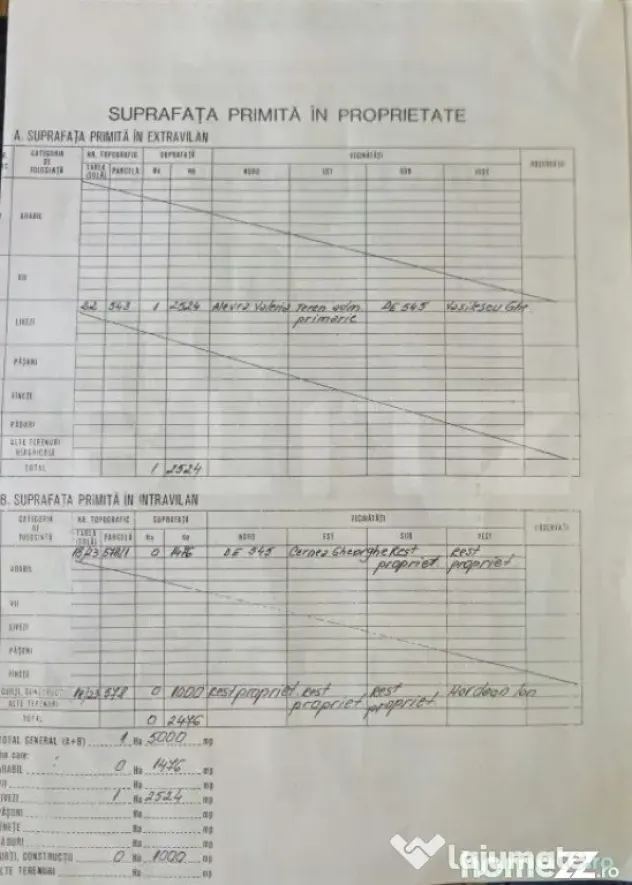 SUPRAFAȚA PRIMITĂ ÎN PROPRIETATE
A. SUPRAFAȚA PRIMITĂ ÎN EXTRAVILAN
CATEGORIA DE FOLOSINȚĂ NR. TOPOGRAFIC SUPRAFAȚĂ VECINĂTĂȚI OBSERVAȚII
TARLA (SOLĂ) PARCELA Ha NORD EST SUD VEST
ARABIL
VII
LIVEZI 22 543 1 2524 Alevra Valeria Teren adm. primarie DE 545 Vasilescu Ghe.
PĂȘUNI
FÎNEȚE
PĂDURI
ALTE TERENURI NEAGRICOLE
TOTAL 1 2524
B. SUPRAFAȚA PRIMITĂ ÎN INTRAVILAN
CATEGORIA DE FOLOSINȚĂ NR. TOPOGRAFIC SUPRAFAȚĂ VECINĂTĂȚI OBSERVAȚII
TARLA (SOLĂ) PARCELA Ha NORD EST SUD VEST
ARABIL 18/23 578/1 0 1476 DE 545 Cernea Gheorghe Rest propriet Rest propriet
VII
LIVEZI
PĂȘUNI
FÎNEȚE
CURȚI, CONSTRUCȚII 18/23 578 0 1000 Rest propriet Rest propriet Rest propriet Hordoan Ion
ALTE TERENURI
TOTAL 0 2476
TOTAL GENERAL (A+B) 1 Ha 5000 mp
din care:
ARABIL 0 Ha 1476 mp
VII Ha mp
LIVEZI 1 Ha 2524 mp
PĂȘUNI Ha mp
FÎNEȚE Ha mp
PĂDURI Ha mp
CURȚI, CONSTRUCȚII 0 Ha 1000 mp
ALTE TERENURI Ha mp
lajumate.ro
HomeZZ.ro